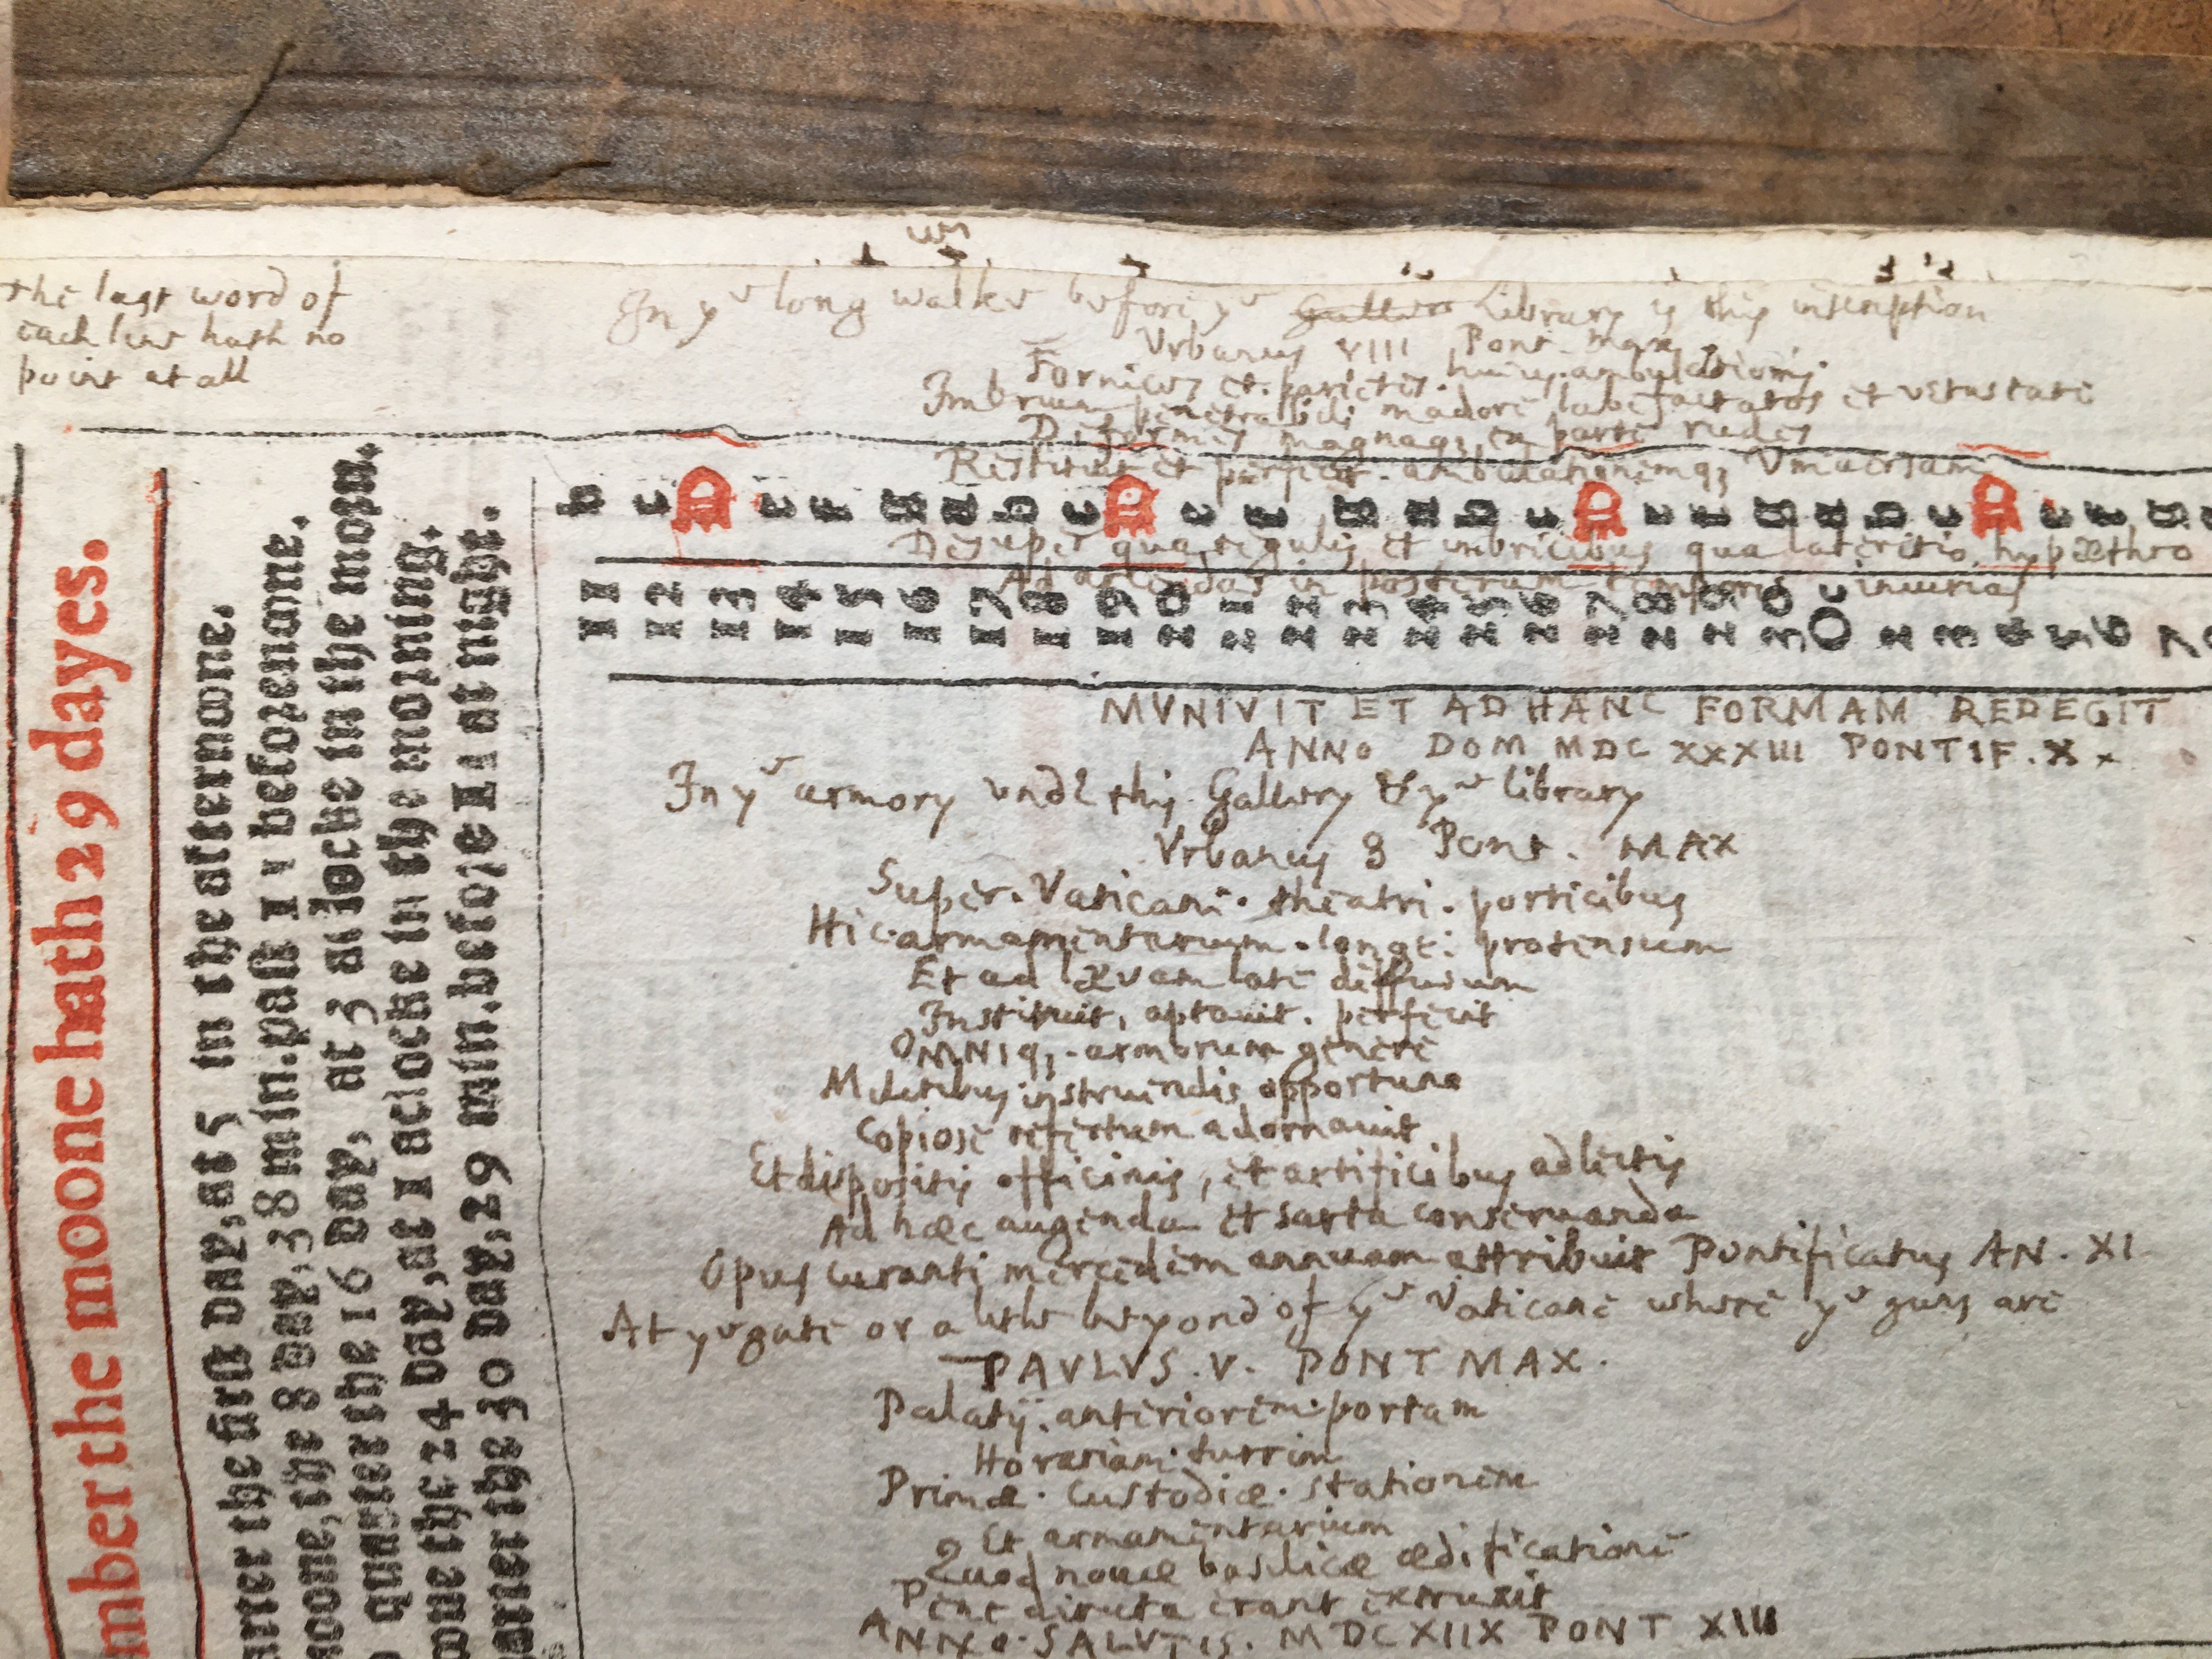 the last word of
each line hath no
point at all
In yᵉ long walke before yᵉ Library is this inscription
Vrbanus VIII Pont. Max
Fornices et parietes huius ambulationis
Imbrium penetrabili madore labefactatos et vetustate
Deformes magnaqꝫ ex parte rudes
Restituit et perfecit. ambulationemqꝫ Vniuersam
Desuper qua tegulis et imbricibus qua lateritio hypæthro
Ad arcendas in posterum temporis iniurias
MVNIVIT ET AD HANC FORMAM REDEGIT
ANNO DOM MDCXXXIII PONTIF. X
In yᵉ armory vnder this Gallery & yᵉ library
Vrbanus 8 Pont. MAX
Super. Vaticani. theatri. porticibus
Hic. armamentarium. longe. protensum
Et ad lævam late diffusum
Instituit, aptauit. perfecit
OMNIqꝫ. armorum genere
Militibus instruendis opportuno
Copiose refertum adornauit.
Et dispositis officinis, et artificibus adlectis
Ad hæc augenda et sarta conseruanda
Opus curanti mercedem annuam attribuit Pontificatus AN. XI
At yᵉ gate or a litle beyond of yᵉ Vaticane where yᵉ guns are
PAVLVS. V. PONT MAX.
Palatij. anteriorem. portam
Horariam. turrim
Primæ. Custodiæ. stationem
Et armamentarium
Quod nouæ basilicæ ædificatione
Pene diruta erant extruxit
ANNO. SALVTIS. MDCXIIX PONT XIII
mber the moone hath 29 dayes.
arter the first day, at 5 in the afternoone.
moone, the 8 day, 38 min. past 11 beforenoone.
quarter the 16 day, at 3 a clocke in the morn.
oone the 24 day, at 1 a clocke in the morning.
arter the 30 day, 29 min. before 11 at night.
b c D e f g A b c D e f g A b c D e f g A b c D e f g
11 12 13 14 15 16 17 18 19 20 21 22 23 24 25 26 27 28 29 30